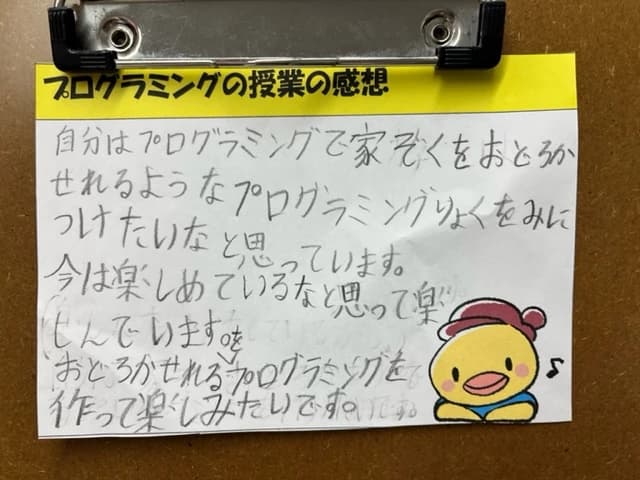 プログラミングの授業の感想
自分はプログラミングで家ぞくをおどろか
せれるようなプログラミングりょくをみに
つけたいなと思っています。
今は楽しめているなと思って楽
しんでいます。を
おどろかせれるプログラミングを
作って楽しみたいです。